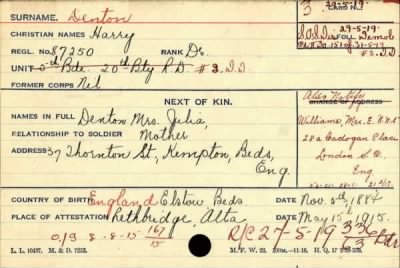 SURNAME. Denton
3 29-5-19.
CARD NO.
CHRISTIAN NAMES Harry
S.O.S. 29-5-19.
FOLL. Demob
REGL. NO. 87250 RANK Dr.
# 3. D.D.
UNIT 5th Bde. 20th Bty R.D # 3. D.D.
FORMER CORPS Nil
NEXT OF KIN.
Also Notify
CHANGE OF ADDRESS
NAMES IN FULL Denton Mrs. Julia,
RELATIONSHIP TO SOLDIER Mother
ADDRESS 37 Thornton St, Kempton, Beds,
Eng.
Williams, Mrs. E.
28a Cadogan Place
London S.
Eng
COUNTRY OF BIRTH England Elstow, Beds
DATE Nov. 5th, 1884
PLACE OF ATTESTATION Lethbridge, Alta
DATE May 15th 1915.
O/S 8-8-15 167/15
R/C 27-5-19 33
L. L. 10437. M. & D. 7253.
M. F. W. 22.